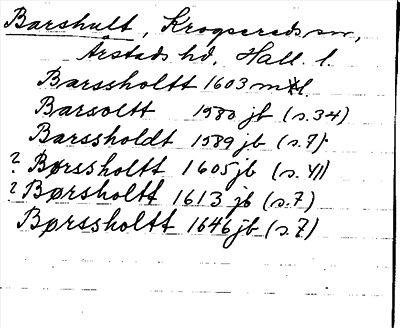 Barshult, Krogsereds sn,
Årstads hd, Hall. l.
Barssholtt 1603 mtl.
Barsoltt 1580 jb (s. 34)
Barssholdt 1589 jb (s. 7)
? Børssholtt 1605 jb (s. 41)
? Børsholtt 1613 jb (s. 7)
Børssholtt 1646 jb (s. 7)